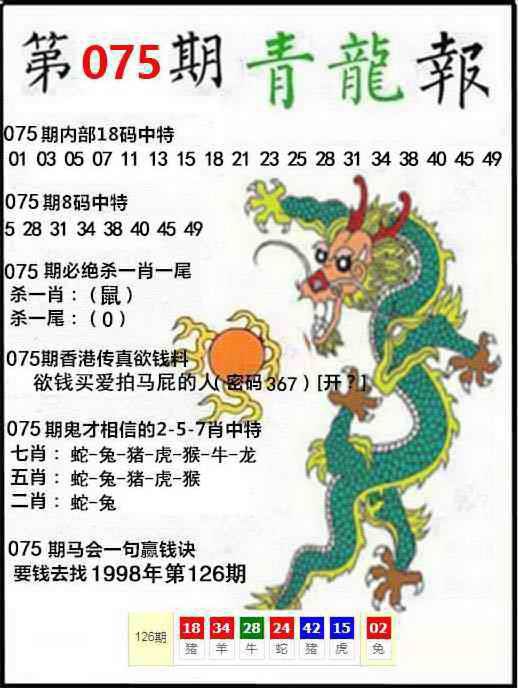 第075期青龍報
075期内部18码中特
01 03 05 07 11 13 15 18 21 23 25 28 31 34 38 40 45 49
075期8码中特
5 28 31 34 38 40 45 49
075 期必绝杀一肖一尾
杀一肖：（鼠）
杀一尾：（0）
075期香港传真欲钱料
欲钱买爱拍马屁的人（密码367）[开？]
075期鬼才相信的2-5-7肖中特
七肖：蛇-兔-猪-虎-猴-牛-龙
五肖：蛇-兔-猪-虎-猴
二肖：蛇-兔
075 期马会一句赢钱诀
要钱去找1998年第126期
126期 18 34 28 24 42 15 02
猪 羊 牛 蛇 猪 虎 兔